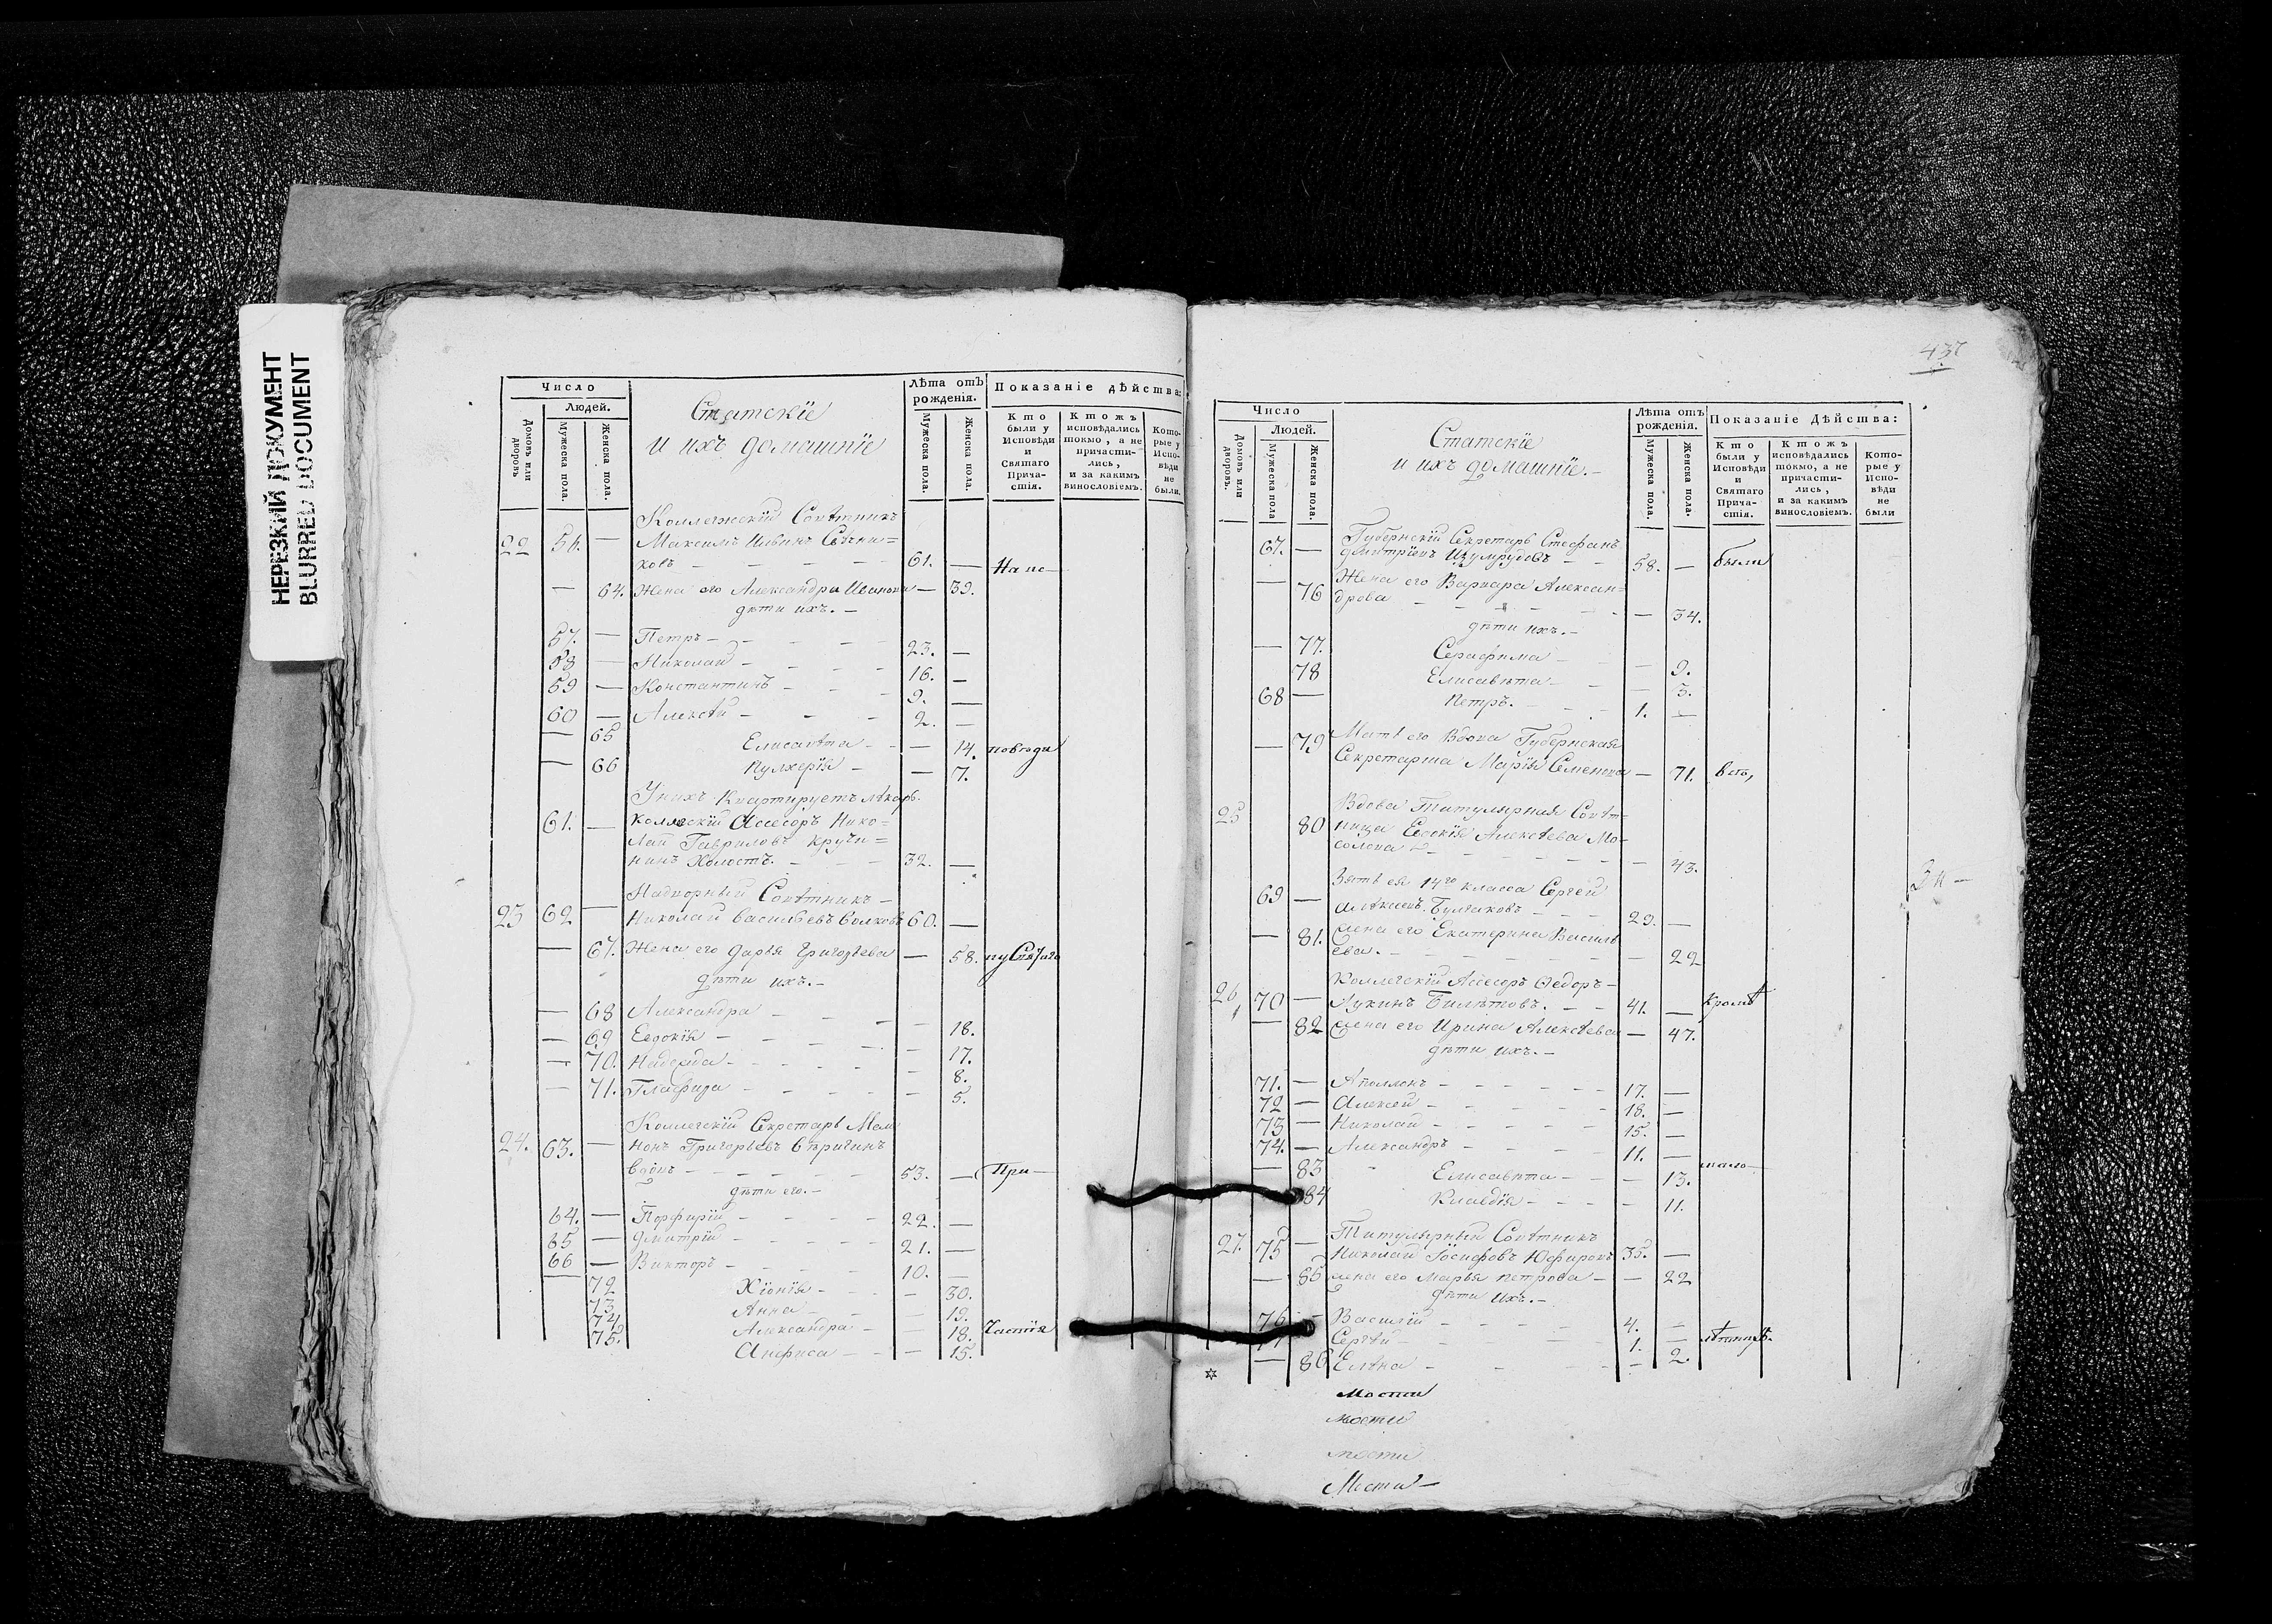 НЕРЕЗКИЙ ДОКУМЕНТ
BLURRED DOCUMENT
Число
Людей.
Домовъ или дворовъ
Мужеска пола.
Женска пола.
Статскіе
и ихъ домашніе
Лѣта отъ рожденія.
Мужеска пола.
Женска пола.
Показаніе дѣйства:
Кто были у Исповѣди и Святаго Причастія.
Ктожъ исповѣдались токмо, а не причастились, и за какимъ винословіемъ.
Которые у Исповѣди не были.
Коллежскій Совѣтникъ
22 56. — Максимъ Ильинъ Свѣчни=
ковъ — — — — 61. — На ис—
— 64. Жена его Александра Иванова — 39.
дѣти ихъ. —
57. — Петръ — — — 23. —
58 — Николай — — — 16. —
59 — Константинъ — — 9. —
60 — Алексѣй — — — 2. —
— 65 Елисавѣта — — 14. повѣди
— 66 Пулхерія — — 7.
У нихъ квартируетъ лѣкарь
61. — Коллежскій Асессоръ Нико=
лай Гавриловъ Кручи=
нинъ Холостъ. — — 32. —
Надворный Совѣтникъ —
23 62 — Николай Васильевъ Волковъ 60. —
— 67. Жена его Дарья Григорьева — 58.
дѣти ихъ. —
— 68 Александра — — — 18.
— 69 Евдокія — — — 17.
— 70. Надежда — — — 8.
— 71. Глафира — — — 5.
Коллегскій Секретарь
24. 63. — Григорьевъ
вдовъ — — — — 53. — При—
дѣти его. —
64. — Порфирій — — — 22. —
65 — Дмитрій — — — 21. —
66 — Викторъ — — — 10. —
— 72 Хіонія — — — 30.
73 Анна — — — 19.
74 Александра — — 18. Частія
75. Анфиса — — 15.
437
Число
Людей.
Домовъ или дворовъ.
Мужеска пола
Женска пола.
Статскіе
и ихъ домашніе. —
Лѣта отъ рожденія.
Мужеска пола.
Женска пола.
Показаніе Дѣйства:
Кто были у Исповѣди и Святаго Причастія.
Ктожъ исповѣдались токмо, а не причастились, и за какимъ винословіемъ.
Которые у Исповѣди не были
67. — Губернскій Секретарь Стефанъ
Дмитріевъ Изумрудовъ — — 58. — были
— 76 Жена его Варвара Алексан=
дрова — — — — 34.
дѣти ихъ. —
— 77. Серафима — — — 9.
78 Елисавѣта — — — 3.
68 — Петръ. — — — 1. —
— 79 Мать его Вдова Губернская
Секретарша Марія Семенова — 71. всѣ,
25 80 Вдова Титулярная Совѣт=
ница Евдокія Алексѣева Мо=
солова — — — — 43.
69 — Зять ея 14го класса Сергѣй
Алексѣевъ Булгаковъ — — 29. —
— 81. Жена его Екатерина Василь
ева. — — — — 22
Коллегскій Асессоръ Федоръ —
26 70 — Лукинъ Билѣтовъ. — — 41. — Кромѣ
— 82 Жена его Ирина Алексѣева — 47.
дѣти ихъ. —
71. — Аполлонъ — — — 17. —
72 — Алексей — — — 18. —
73 — Николай — — — 15. —
74. — Александръ — — — 11. —
— 83 Елисавѣта — — — 13. мало—
84 Клавдія — — — 11.
27. 75 — Титулярный Совѣтникъ
Николай Іосифовъ 35. —
— 85 Жена его Марья Петрова — — 22
дѣти ихъ. —
76 — Василій — — — 4. —
77 Сергѣй — — — 1. — лѣтныхъ.
— 86 Елена — — — 2.
Мости
мости
мости
Мости —